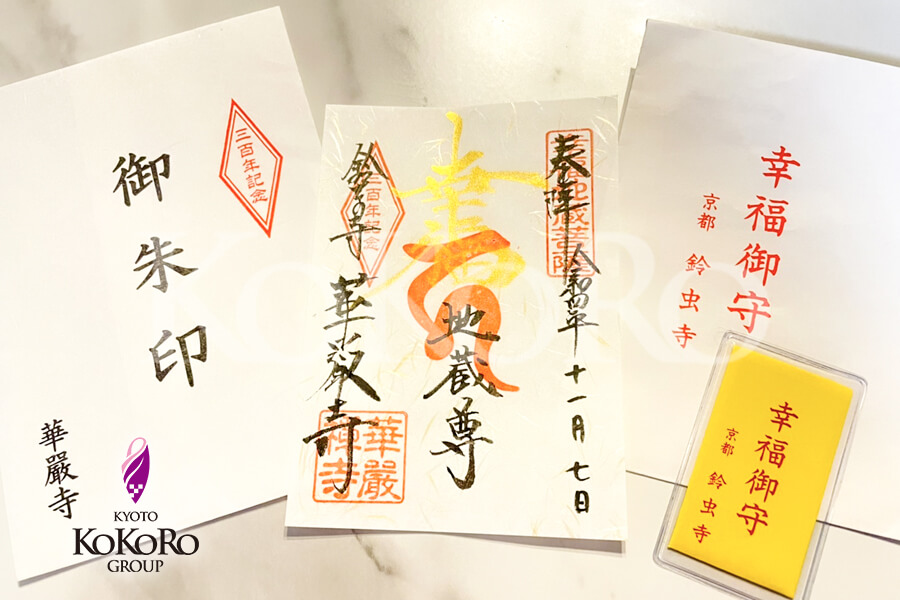 御朱印
三百年記念
華嚴寺
奉拝
令和四年
十一月
七日
壽
地蔵尊
鈴虫寺
三百年記念
華厳寺
華嚴
禅寺
幸福御守
京都 鈴虫寺
幸福御守
京都 鈴虫寺
KYOTO
KOKORO
GROUP
KOKORO